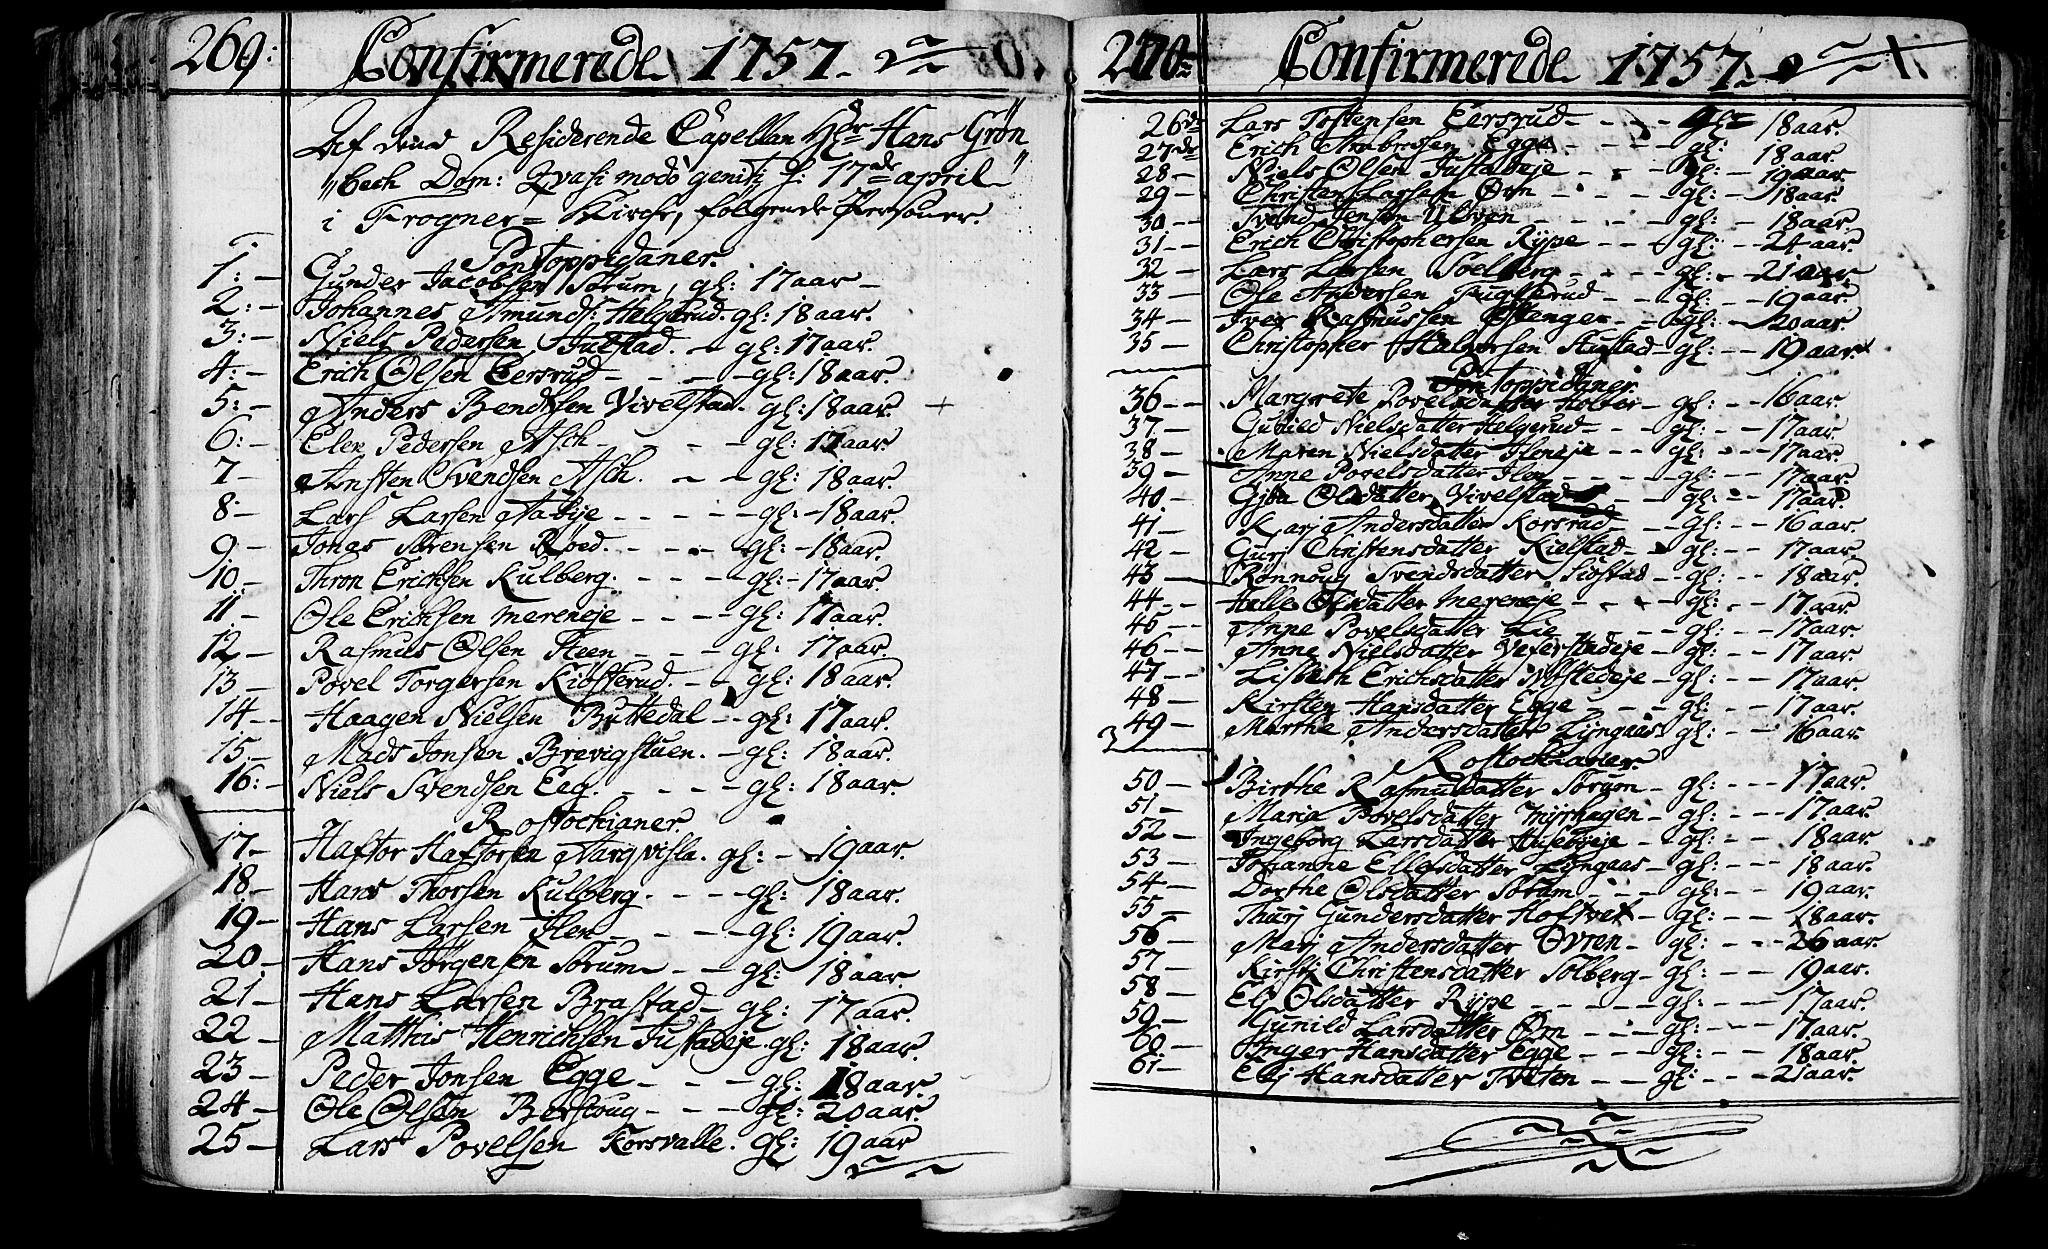 269: Confirmerede 1757.
Af den Residerende Capellan Hr. Hans Grön
"bech Dom: Qvasi modo geniti d: 17de april
i Frogner = Kirche, følgende Personer.
Pontoppidaner.
1: - Gunder Jacobsen Sørum, gl: 17 aar -
2: - Johannes Amunds: Helgerud. gl: 18 aar.
3: - Niels Pedersen Julstad. - gl: 17 aar.
4: - Erich Olsen Eersrud - - - - gl: 18 aar.
5: - Anders Bendtsen Vivelstad. gl: 18 aar. +
6: - Elen Pedersen Asch - - - - gl: 17 aar.
7 - Ansten Svendsen Asch. - - gl: 18 aar.
8 - Lars Larsen - - - - - gl: - 18 aar.
9 - Jonas Sørensen Roed. - - - - gl: - 18 aar.
10. - Thron Erichsen Kulberg. - - - - gl: - 17 aar
11. - Ole Erichsen mereneje - - - - gl: 17 aar.
12 - Rasmus Olsen Heen - - - gl: 17 aar.
13 - Povel Torgersen Kiosterud - - gl: 18 aar.
14 - - Haagen Nielsen Buttedal - - gl: 17 aar.
15. - Mads Jonsen Brevigstuen. - gl: 18 aar.
16: - Niels Svendsen Eeg. - - - - gl: 18 aar.
Rostochianer.
17 - Haftor Haftorsen . gl: - 19 aar.
18 - Hans Thorsen Kulberg. - - - gl: 18 aar.
19 - Hans Larsen Hen - - - - - gl: 19 aar.
20 - Hans Jørgensen Sørum - - - gl: 18 aar.
21 - Hans Larsen Brastad - gl: 17 aar.
22 - Matthis Henrichsen Justadeje. gl: 18 aar.
23 - Peder Jonsen Egge - - - - gl: 18 aar.
24 - Ole Olsen Berstoug - - - gl: 20 aar.
25 - Lars Povelsen Forsvalle. gl: 19 aar
270 Confirmerede 1757.
26de Lars Tostensen Eersrud - - - - gl: 18 aar.
27de Erich Ambrosen Egge. - - - gl: 18 aar.
28 - Niels Olsen Justadeje - - - gl: - 19 aar.
29 - Christen Larsen Ørn - - - - gl: - 18 aar.
30 - - Svend Jensen Ulven - - - - - gl: - 18 aar.
31 - - Erich Christophersen Rype - - - gl: - 24 aar.
32 - Lars Larsen Soelberg - - - - gl: - 21 aar
33 - Ole Andersen Fuglerud - - - gl: - - 19 aar.
34 - Iver Rasmussen Østengen - - gl: - - 20 aar.
35 - Christopher Halvorsen Hustad - gl: - - 19 aar.
Pontoppidaner
36 - - Margrete Povelsdatter Holter - gl: - - 16 aar.
37 - Gunild Nielsdatter Helgerud - - - gl: - - 17 aar.
38 - Maren Nielsdatter Heneje - - gl: - - 17 aar.
39 - Anne Povelsdatter Hen - - - - - gl: - - 17 aar.
40. - Olsdatter Vivelstad - - gl: - - 17 aar
41 - Kari Andersdatter Korsrud - - gl: - - 16 aar.
42 - Gurj Christensdatter Kielstad - - gl: - - 17 aar.
43 - Rønnoug Svendsdatter Siostad - - gl: - - 18 aar.
44 - - Helle Olsdatter Mereneje - - - - gl: - - 17 aar
45 - - Anne Povelsdatter Lie - - - gl: - - 17 aar.
46 - - Anne Nielsdatter - gl: - - 17 aar.
47 - - Lisbeth Erichsdatter - gl: - - 17 aar.
48 - Kirsten Hansdatter Egge - - - - gl: - - 17 aar.
49 - Marthe Andersdatter Lyngaas gl: - - 16 aar.
Rostochianer.
50 - Birthe Rasmusdatter Sørum - gl: - - 17 aar.
51 - Maria Povelsdatter Myrhagen - gl: - - - 17 aar.
52 - Ingeborg Larsdatter Husebyeje - gl: - - - 18 aar.
53 - Johanne Ellefsdatter Lyngaas - gl: - - - 18 aar.
54 - Dorthe Olsdatter Sørum - - - gl: - - 19 aar.
55 - Thurj Gundersdatter Hoftvet - gl: - - 18 aar.
56 - Marj Andersdatter Øvren - gl: - - - 26 aar.
57 - Kirstj Christensdatter Solberg - gl: - - 19 aar.
58 - Eli Olsdatter Rype - - - - - gl: - - - 17 aar.
59 - Gunild Larsdatter Ørn - - - gl: - - 17 aar.
60 - Inger Hansdatter Egge - - - gl: - - 18 aar.
61 - Elj Hansdatter Tveten - - - gl: - - - 21 aar.